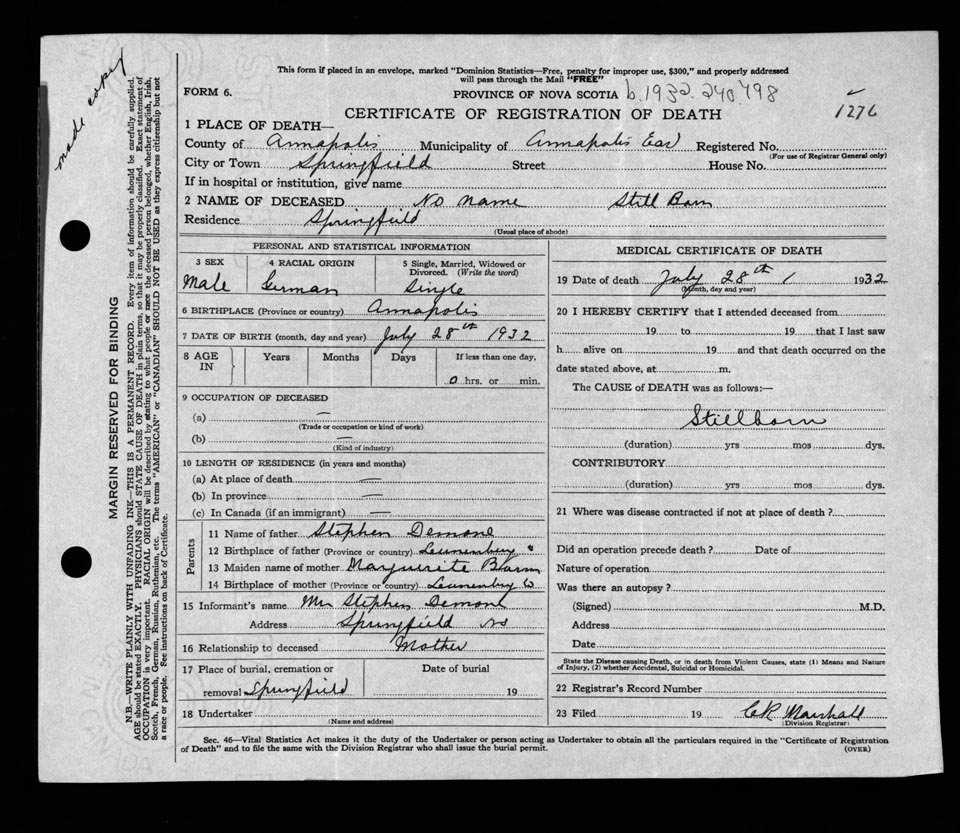 This form if placed in an envelope, marked "Dominion Statistics—Free, penalty for improper use, $300," and properly addressed
will pass through the Mail "FREE"
FORM 6.
PROVINCE OF NOVA SCOTIA b.1932.240798
1276
made copy
CERTIFICATE OF REGISTRATION OF DEATH
1 PLACE OF DEATH—
County of Annapolis Municipality of Annapolis Registered No.
(For use of Registrar General only)
City or Town Springfield Street House No.
If in hospital or institution, give name
2 NAME OF DECEASED No name Still Born
Residence Springfield
(Usual place of abode)
PERSONAL AND STATISTICAL INFORMATION
3 SEX 4 RACIAL ORIGIN 5 Single, Married, Widowed or
Divorced. (Write the word)
Male German Single
6 BIRTHPLACE (Province or country) Annapolis
7 DATE OF BIRTH (month, day and year) July 28th 1932
8 AGE IN Years Months Days If less than one day,
0 hrs. or min.
9 OCCUPATION OF DECEASED
(a) —
(Trade or occupation or kind of work)
(b) —
(Kind of industry)
10 LENGTH OF RESIDENCE (in years and months)
(a) At place of death —
(b) In province —
(c) In Canada (if an immigrant) —
Parents
11 Name of father Stephen Demone
12 Birthplace of father (Province or country)
13 Maiden name of mother Marguerite
14 Birthplace of mother (Province or country)
15 Informant's name Mrs Stephen Demone
Address Springfield NS
16 Relationship to deceased Mother
17 Place of burial, cremation or Date of burial
removal Springfield 19
18 Undertaker
(Name and address)
MEDICAL CERTIFICATE OF DEATH
19 Date of death July 28th 1932
(Month, day and year)
20 I HEREBY CERTIFY that I attended deceased from
19 to 19 that I last saw
h alive on 19 and that death occurred on the
date stated above, at m.
The CAUSE of DEATH was as follows:—
Stillborn
(duration) yrs mos dys.
CONTRIBUTORY
(duration) yrs mos dys.
21 Where was disease contracted if not at place of death?
Did an operation precede death? Date of
Nature of operation
Was there an autopsy?
(Signed) M.D.
Address
Date
State the Disease causing Death, or in death from Violent Causes, state (1) Means and Nature
of Injury, (2) whether Accidental, Suicidal or Homicidal.
22 Registrar's Record Number
23 Filed 19 C.R. Marshall
(Division Registrar)
Sec. 46—Vital Statistics Act makes it the duty of the Undertaker or person acting as Undertaker to obtain all the particulars required in the "Certificate of Registration
of Death" and to file the same with the Division Registrar who shall issue the burial permit.
(OVER)
MARGIN RESERVED FOR BINDING
N.B.—WRITE PLAINLY WITH UNFADING INK—THIS IS A PERMANENT RECORD. Every item of information should be carefully supplied.
AGE should be stated EXACTLY. PHYSICIANS should STATE CAUSE OF DEATH in plain terms, so that it may be properly classified. Exact statement of
OCCUPATION is very important. RACIAL ORIGIN will be described by stating to what people or race the deceased person belonged, whether English, Irish,
Scotch, French, German, Russian, Ruthenian, etc. The terms "AMERICAN" or "CANADIAN" SHOULD NOT BE USED as they express citizenship but not
a race or people. See instructions on back of Certificate.